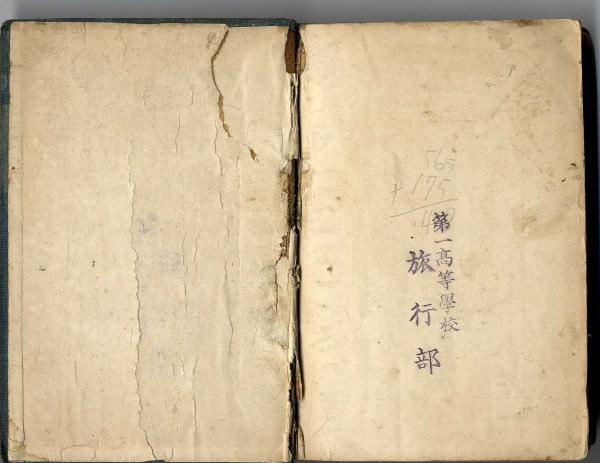 565
+175
第一高等學校
旅行部